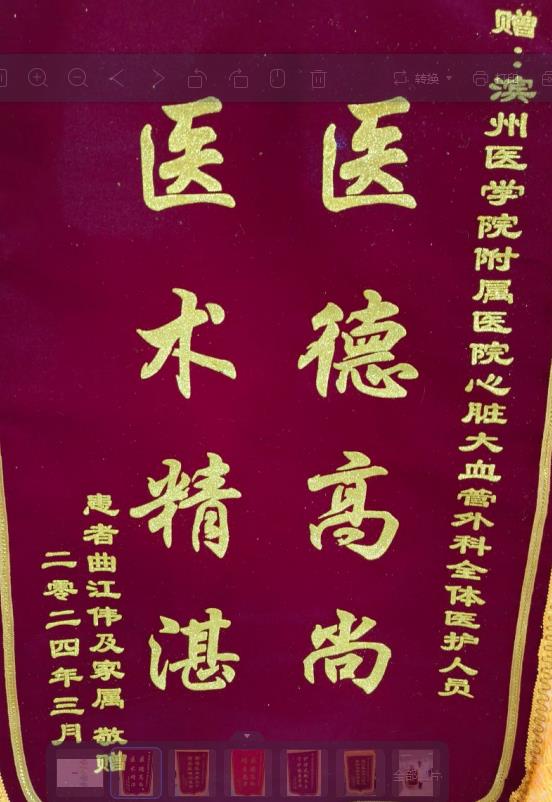 赠：滨州医学院附属医院心脏大血管外科全体医护人员
医德高尚
医术精湛
患者曲江伟及家属 敬赠
二零二四年三月
转换
打印